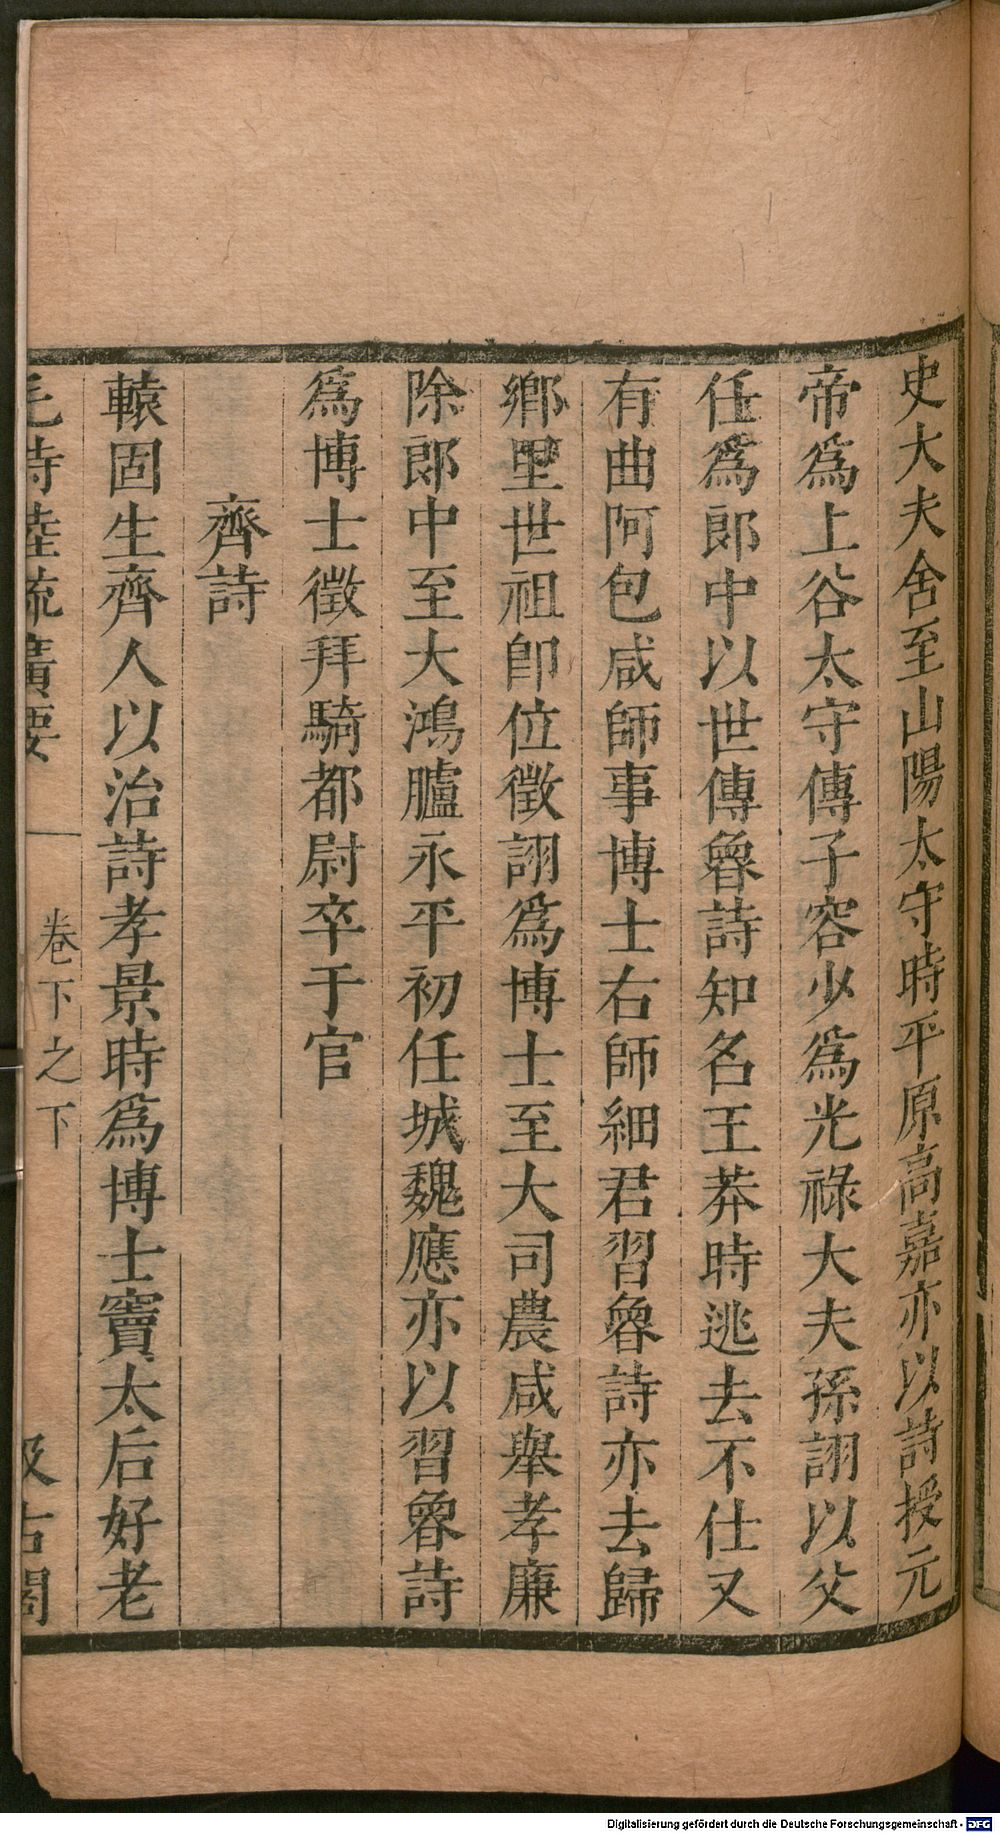 史大夫舍至山陽太守時平原高嘉亦以詩授元
帝爲上谷太守傳子容少爲光祿大夫孫詡以父
任爲郎中以世傳魯詩知名王莽時逃去不仕又
有曲阿包咸師事博士右師細君習魯詩亦去歸
鄉里世祖卽位徵詡爲博士至大司農咸舉孝廉
除郎中至大鴻臚永平初任城魏應亦以習魯詩
爲博士徵拜騎都尉卒于官
齊詩
轅固生齊人以治詩孝景時爲博士竇太后好老
毛詩陸疏廣要
卷下之下
汲古閣
Digitalisierung gefördert durch die Deutsche Forschungsgemeinschaft - DFG